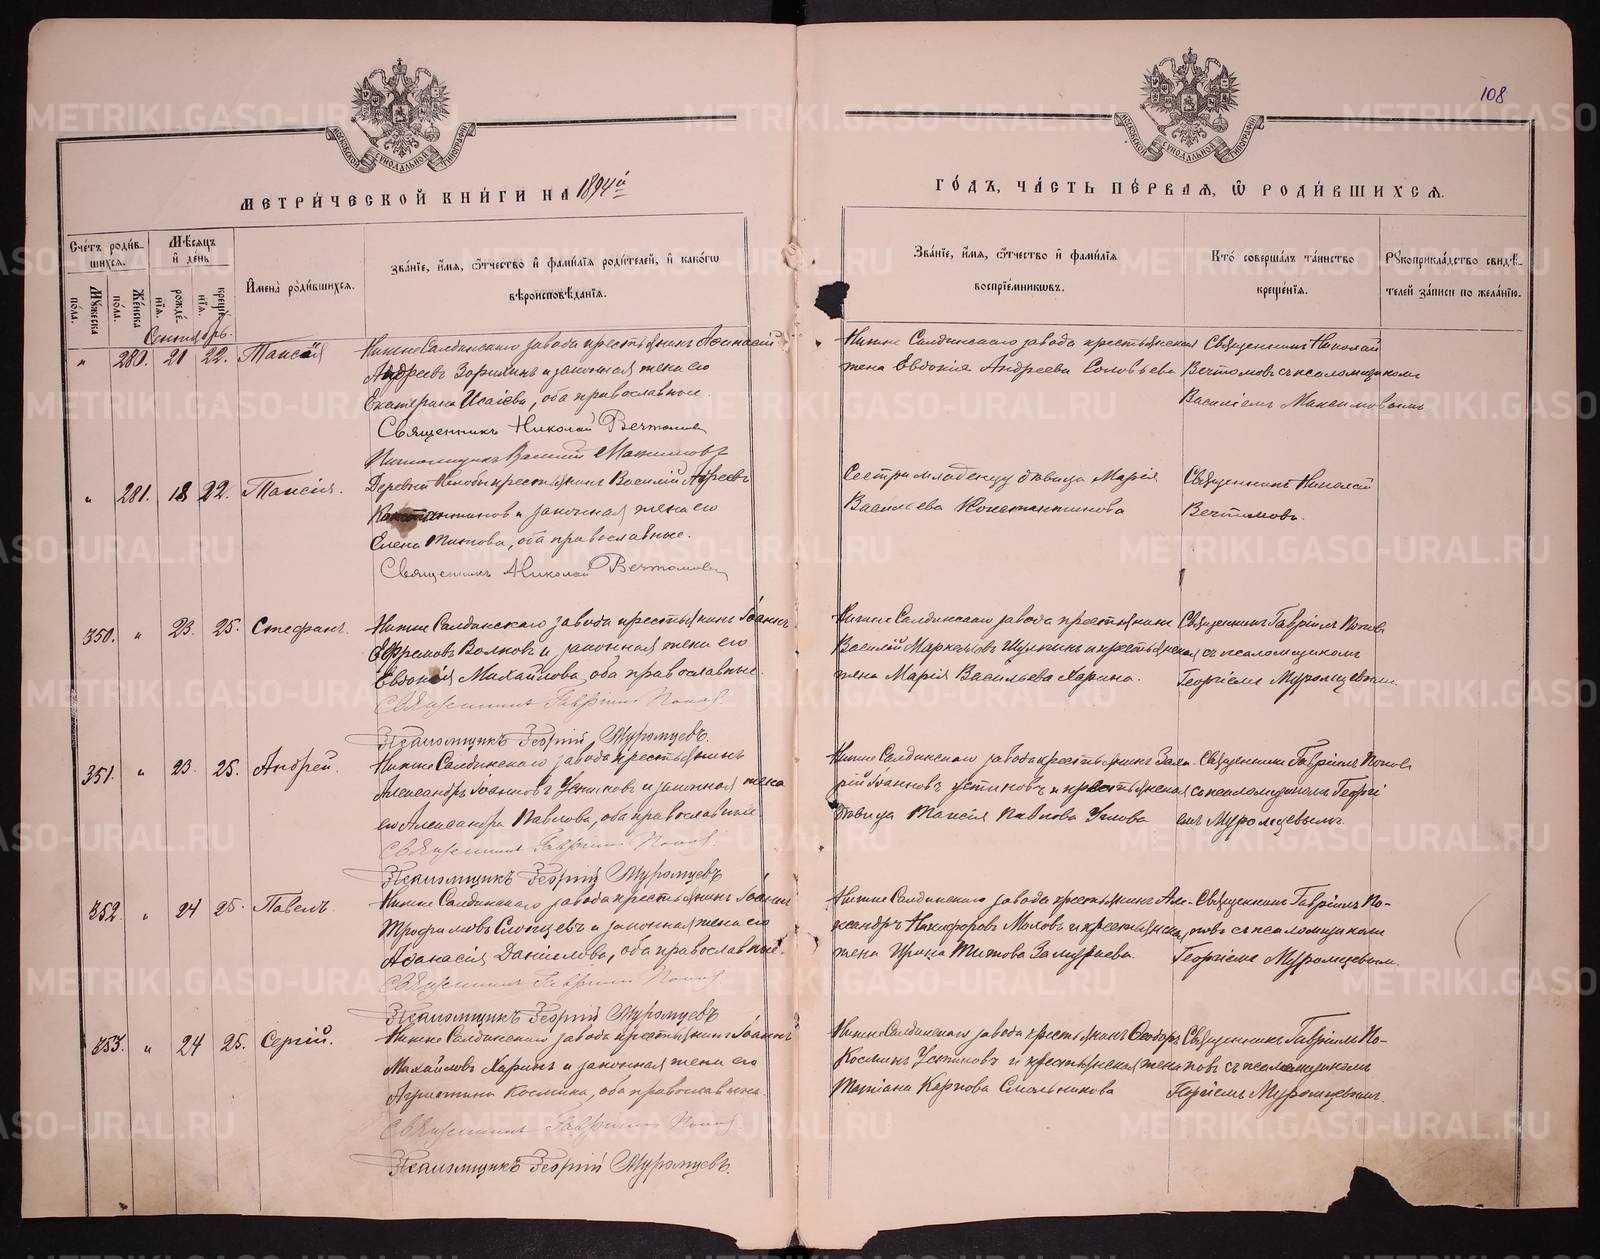 108
МОСКОВСКОЙ СѴНОДАЛЬНОЙ ТИПОГРАФІИ
МОСКОВСКОЙ СѴНОДАЛЬНОЙ ТИПОГРАФІИ
МЕТРИ́ЧЕСКОЙ КНИ́ГИ НА 1894й
ГО́ДЪ, ЧА́СТЬ ПЕ́РВАЯ, Ѡ҆ РОДИ́ВШИХСЯ.
Сче́тъ роди́в-
шихся.
Мꙋ́жеска по́ла.
Же́нска по́ла.
Мѣ́сяцъ и҆ де́нь
рожде́нїя.
креще́нїя.
И҆мена̀ роди́вшихся.
Зва́нїе, и҆́мя, ѻ҆́тчество и҆ фами́лїя роди́телей, и҆ како́гѡ
вѣроисповѣ́данїя.
Зва́нїе, и҆́мя, ѻ҆́тчество и҆ фами́лїя
воспрїе́мникѡвъ.
Кто̀ соверша́лъ та́инство
креще́нїя.
Рꙋкоприкла́дство свидѣ́-
телей за́писи по жела́нїю.
Сентябрь.
" 280. 21 22. Таисія
Нижне Салдинскаго завода крестьянинъ Аѳанасій
Андреевъ Зорихинъ и законная жена его
Екатерина Исаіева, оба православные.
Священникъ Николай Вечтомовъ
Псаломщикъ Василій Максимовъ
Нижне Салдинскаго завода крестьянская
жена Евдокія Андреева Соловьева
Священникъ Николай
Вечтомовъ съ псаломщикомъ
Василіемъ Максимовымъ
" 281. 18 22. Таисія.
Деревни крестьянинъ Василій Андреевъ
Константиновъ и законная жена его
Елена Титова, оба православные.
Священникъ Николай Вечтомовъ
Сестра младенцу дѣвица Марія
Василіева Константинова
Священникъ Николай
Вечтомовъ.
350. " 23. 25. Стефанъ.
Нижне Салдинскаго завода крестьянинъ Іоаннъ
Ефремовъ Волковъ и законная жена его
Евдокія Михайлова, оба православные.
Священникъ Гавріилъ Поповъ.
Псаломщикъ Георгій Муромцевъ.
Нижне Салдинскаго завода крестьянинъ
Василій Маркеловъ и крестьянская
жена Марія Васильева Харина.
Священникъ Гавріилъ Поповъ
съ псаломщикомъ
Георгіемъ Муромцевымъ.
351. " 23. 25. Андрей.
Нижне Салдинскаго завода крестьянинъ
Александръ Іоанновъ Устиновъ и законная жена
его Александра Павлова, оба православные.
Священникъ Гавріилъ Поповъ.
Псаломщикъ Георгій Муромцевъ
Нижне Салдинскаго завода крестьянинъ
Іоанновъ Устиновъ и крестьянская
дѣвица Таисія Павлова
Священникъ Гавріилъ Поповъ
съ псаломщикомъ Георгі-
емъ Муромцевымъ.
352. " 24 25. Павелъ.
Нижне Салдинскаго завода крестьянинъ Іоаннъ
Трофимовъ и законная жена его
Аѳанасія Даніилова, оба православные.
Священникъ Гавріилъ Поповъ.
Псаломщикъ Георгій Муромцевъ
Нижне Салдинскаго завода крестьянинъ Але-
ксандръ Никифоровъ и крестьянская
жена Ирина Титова Замураева.
Священникъ Гавріилъ По-
повъ съ псаломщикомъ
Георгіемъ Муромцевымъ.
353. " 24 25. Сергій.
Нижне Салдинскаго завода крестьянинъ Іоаннъ
Михайловъ Харинъ и законная жена его
Агриппина Космина, оба православные
Священникъ Гавріилъ Поповъ
Псаломщикъ Георгій Муромцевъ.
Нижне Салдинскаго завода крестьянинъ Ѳеодоръ
Косминъ Устиновъ и крестьянская жена
Татіана Карпова Смольникова
Священникъ Гавріилъ По-
повъ съ псаломщикомъ
Георгіемъ Муромцевымъ.
METRIKI.GASO-URAL.RU